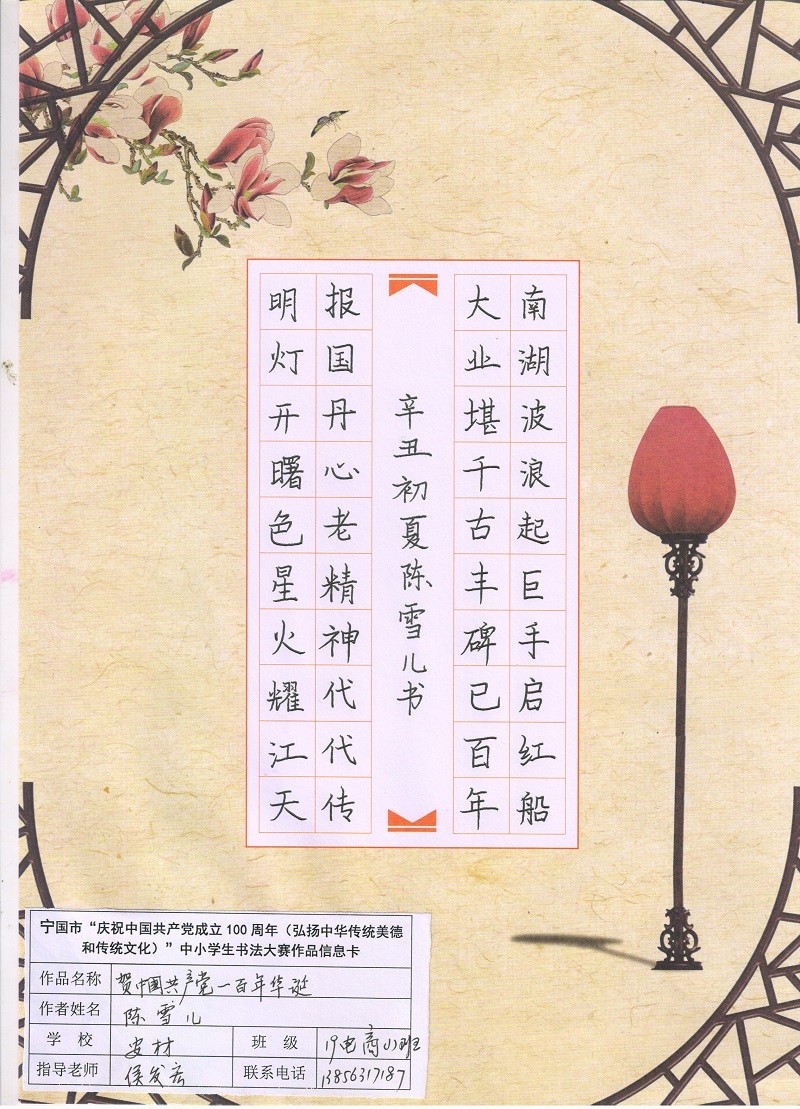 南湖波浪起巨手启红船
大业堪千古丰碑已百年
辛丑初夏陈雪儿书
报国丹心老精神代代传
明灯开曙色星火耀江天
宁国市“庆祝中国共产党成立 100 周年（弘扬中华传统美德
和传统文化）”中小学生书法大赛作品信息卡
作品名称 贺中國共产党一百年华诞
作者姓名 陈雪儿
学 校 安材 班 级 19电商(1)班
指导老师 侯发宏 联系电话 13856317187